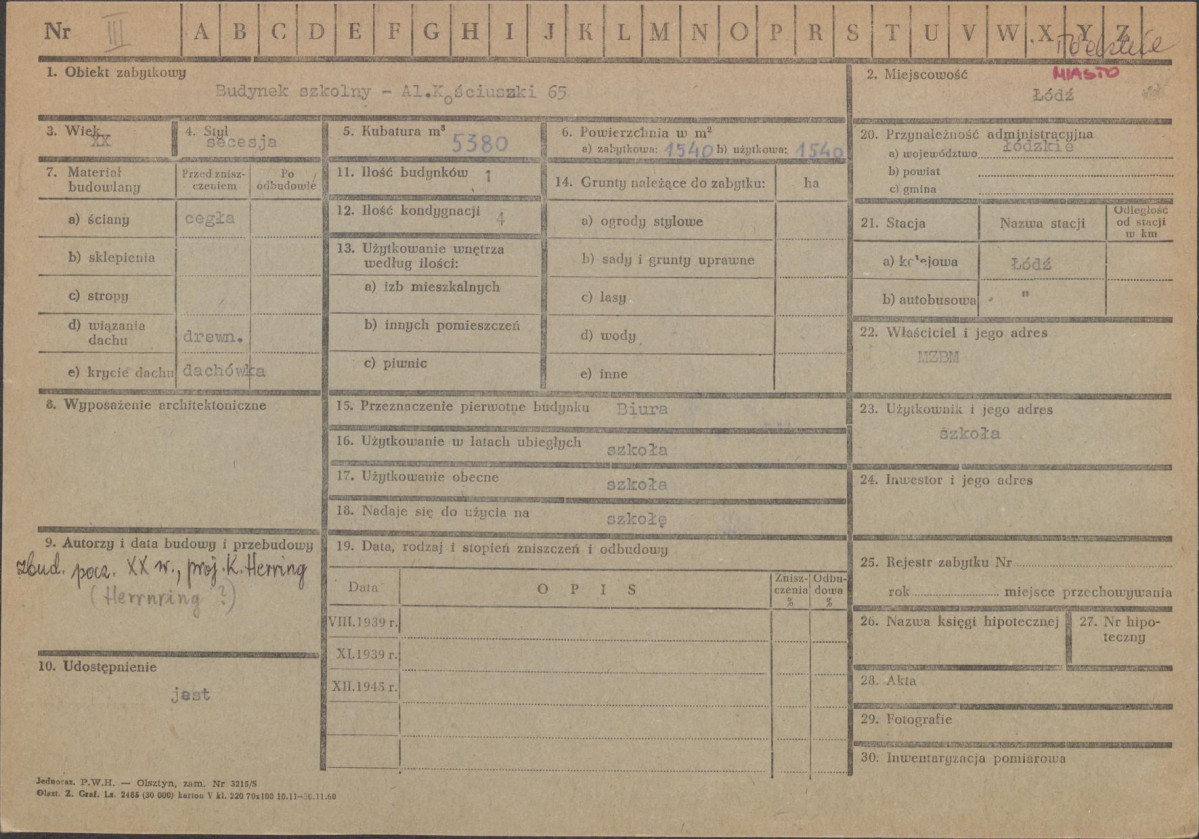 Nr III A B C D E F G H I J K L M N O P R S T U V W X Y Z
1. Obiekt zabytkowy
Budynek szkolny - Al.Kościuszki 65
2. Miejscowość
MIASTO
Łódź
3. Wiek
XX
4. Styl
secesja
5. Kubatura m³
5380
6. Powierzchnia w m²
a) zabytkowa: 1540 b) użytkowa: 1540
20. Przynależność administracyjna
a) województwo łódzkie
b) powiat
c) gmina
7. Materiał budowlany
Przed znisz-
czeniem
Po
odbudowie
a) ściany cegła
b) sklepienia
c) stropy
d) wiązania
dachu drewn.
e) krycie dachu dachówka
11. Ilość budynków 1
12. Ilość kondygnacji 4
13. Użytkowanie wnętrza
według ilości:
a) izb mieszkalnych
b) innych pomieszczeń
c) piwnic
14. Grunty należące do zabytku: ha
a) ogrody stylowe
b) sady i grunty uprawne
c) lasy
d) wody
e) inne
21. Stacja Nazwa stacji
Odległość
od stacji
w km
a) kolejowa Łódź
b) autobusowa "
22. Właściciel i jego adres
MZBM
8. Wyposażenie architektoniczne
15. Przeznaczenie pierwotne budynku Biura
16. Użytkowanie w latach ubiegłych szkoła
17. Użytkowanie obecne szkoła
18. Nadaje się do użycia na szkołę
23. Użytkownik i jego adres
szkoła
24. Inwestor i jego adres
9. Autorzy i data budowy i przebudowy
zbud. pocz. XX w., proj. K. Herring
(Herrnring ?)
19. Data, rodzaj i stopień zniszczeń i odbudowy
Data OPIS
Znisz-
czenia
%
Odbu-
dowa
%
VIII.1939 r.
XI.1939 r.
XII.1945 r.
25. Rejestr zabytku Nr
rok miejsce przechowywania
26. Nazwa księgi hipotecznej
27. Nr hipo-
teczny
10. Udostępnienie
jest
28. Akta
29. Fotografie
30. Inwentaryzacja pomiarowa
Jednoraz. P.W.H. — Olsztyn, zam. Nr 3215/S
Olszt. Z. Graf. Lz. 2485 (30 000) karton V kl. 220 70x100 10.11-30.11.60